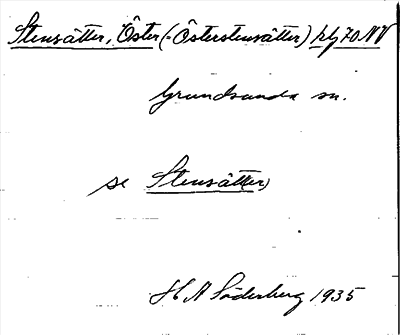 Stensätter, Öster (=Österstensätter) hg 70 NV
Grundsunda sn.
se Stensätt(er)
H A Söderberg 1935